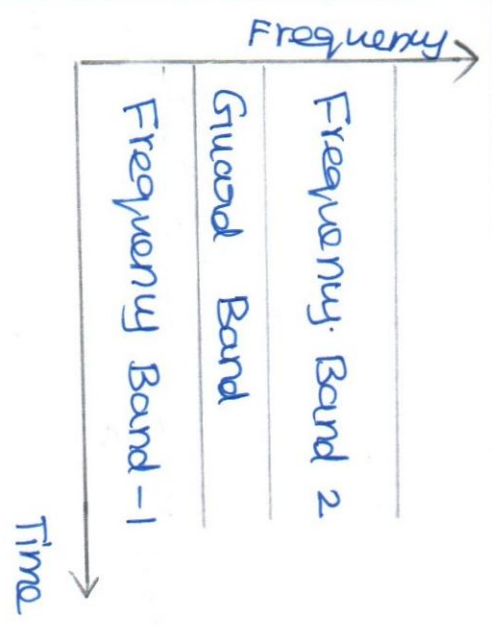 Frequency
Frequency Band 2
Guard Band
Frequency Band-1
Time